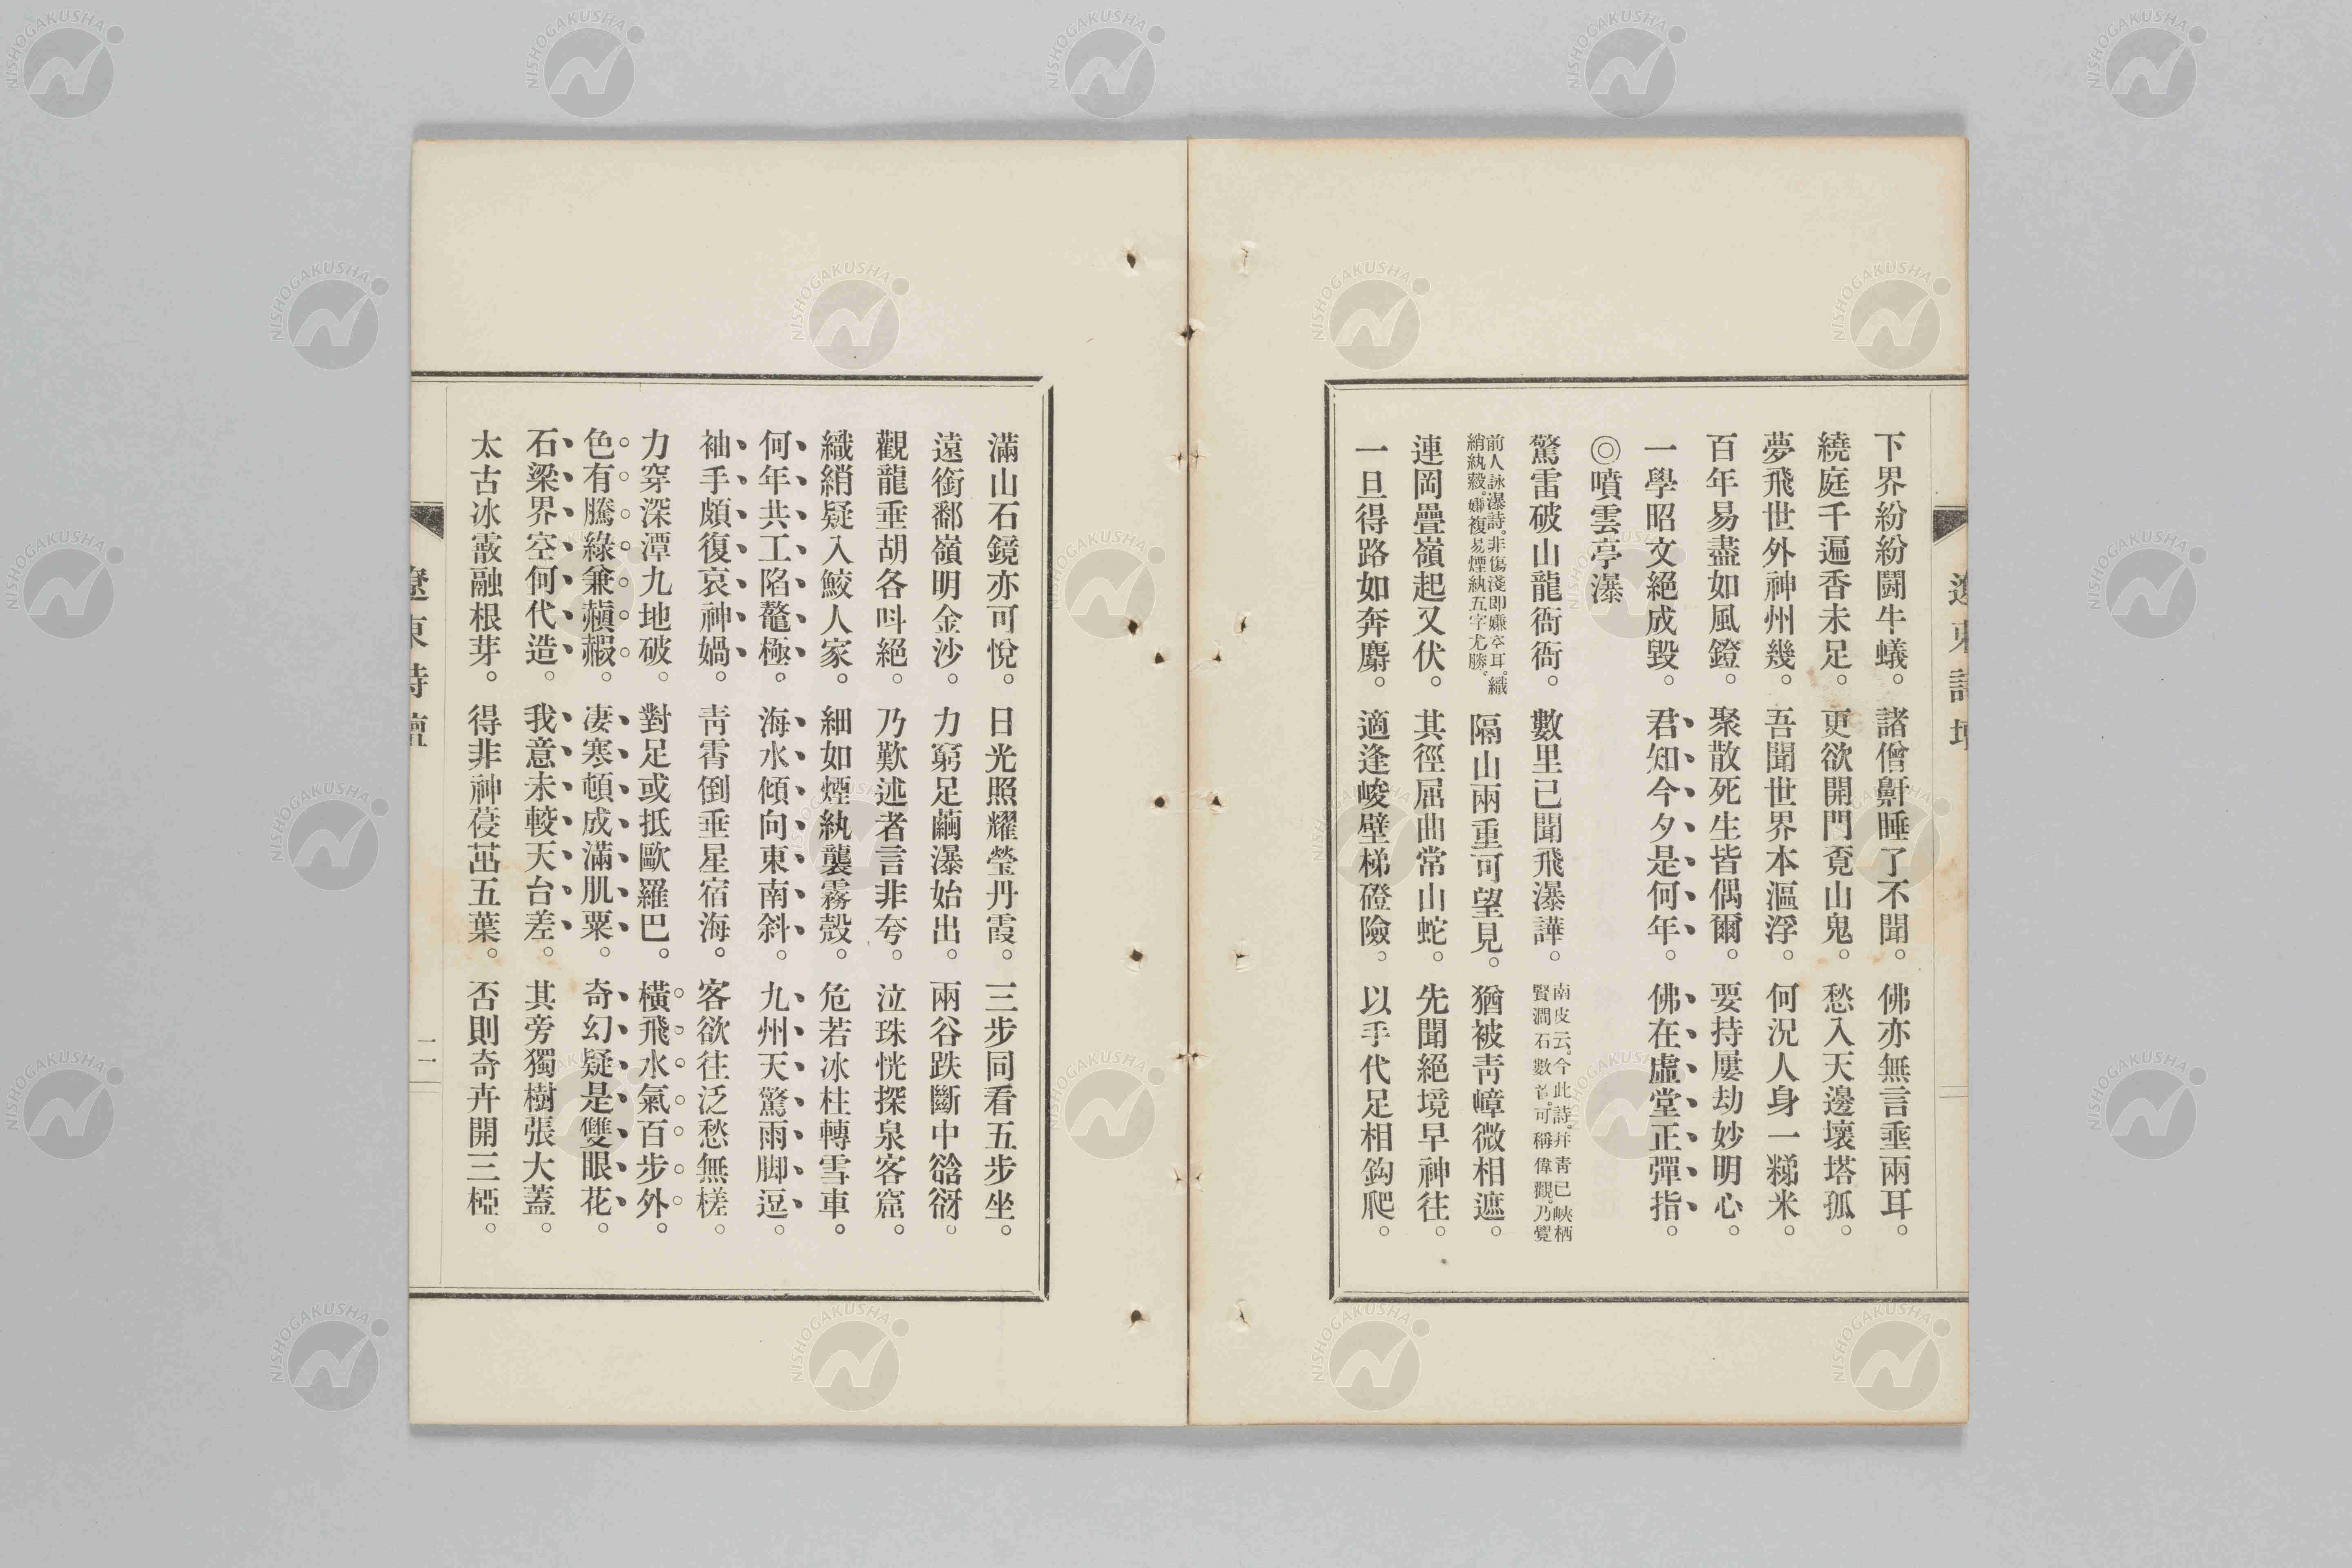 下界紛紛鬪牛蟻。諸僧鼾睡了不聞。佛亦無言垂兩耳。
繞庭千遍香未足。更欲開門覔山鬼。愁入天邊壞塔孤。
夢飛世外神州幾。吾聞世界本漚浮。何況人身一粰米。
百年易盡如風鐙。聚散死生皆偶爾。要持屢劫妙明心。
一學昭文絕成毀。君知今夕是何年。佛在虛堂正彈指。
◎噴雲亭瀑
驚雷破山龍衙衙。數里已聞飛瀑譁。
南皮云。今此詩。幷靑已峽栖
賢澗石數首。可稱偉觀。乃覺
前人詠瀑詩。非傷淺即嫌空耳。織
綃紈縠。嫌複易煙紈五字尤勝。
隔山兩重可望見。猶被靑嶂微相遮。
連岡疊嶺起又伏。其徑屈曲常山蛇。先聞絕境早神往。
一旦得路如奔麏。適逢峻壁梯磴險。以手代足相鈎爬。
滿山石鏡亦可悅。日光照耀瑩丹霞。三步同看五步坐。
遠銜鄱嶺明金沙。力窮足繭瀑始出。兩谷跌斷中谽谺。
觀龍垂胡各呌絕。乃歎述者言非夸。泣珠恍探泉客窟。
織綃疑入鮫人家。細如煙紈襲霧縠。危若冰柱轉雪車。
何年共工陷鼇極。海水傾向東南斜。九州天驚雨脚逗。
袖手頗復哀神媧。靑霄倒垂星宿海。客欲往泛愁無槎。
力穿深潭九地破。對足或抵歐羅巴。橫飛水氣百步外。
色有騰綠兼赬赮。凄寒頓成滿肌粟。奇幻疑是雙眼花。
石梁界空何代造。我意未較天台差。其旁獨樹張大蓋。
太古冰霰融根芽。得非神葠茁五葉。否則奇卉開三椏。
遼東詩壇
二
遼東詩壇
NISHOGAKUSHA